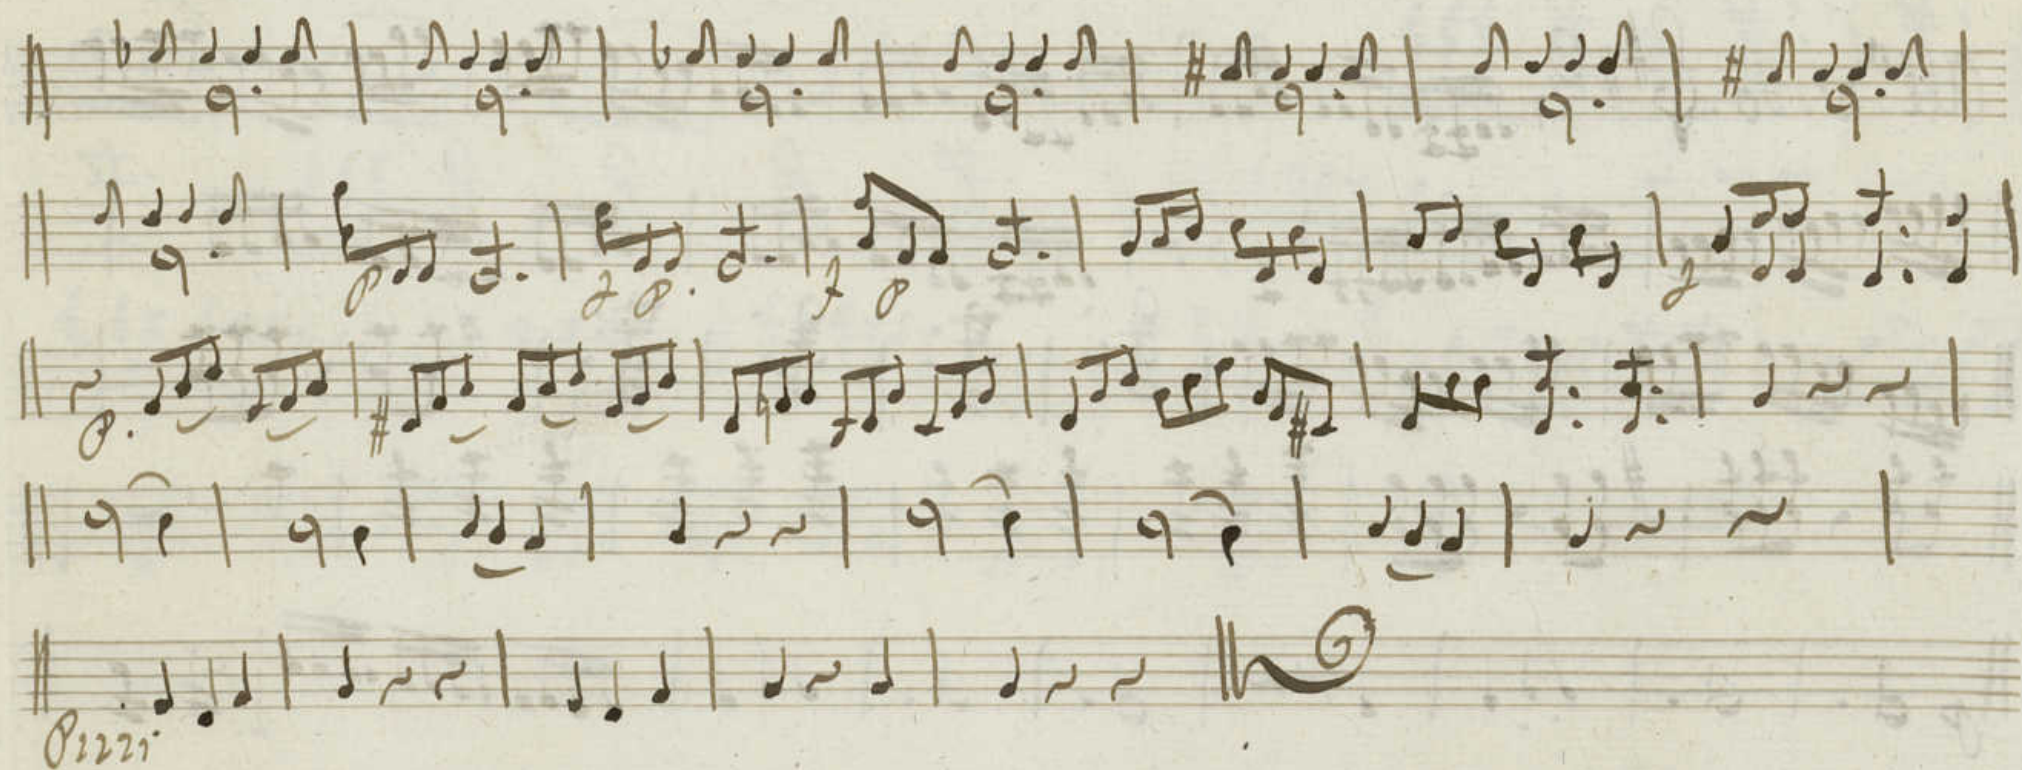 P f P. f P f
P.
Pizzi